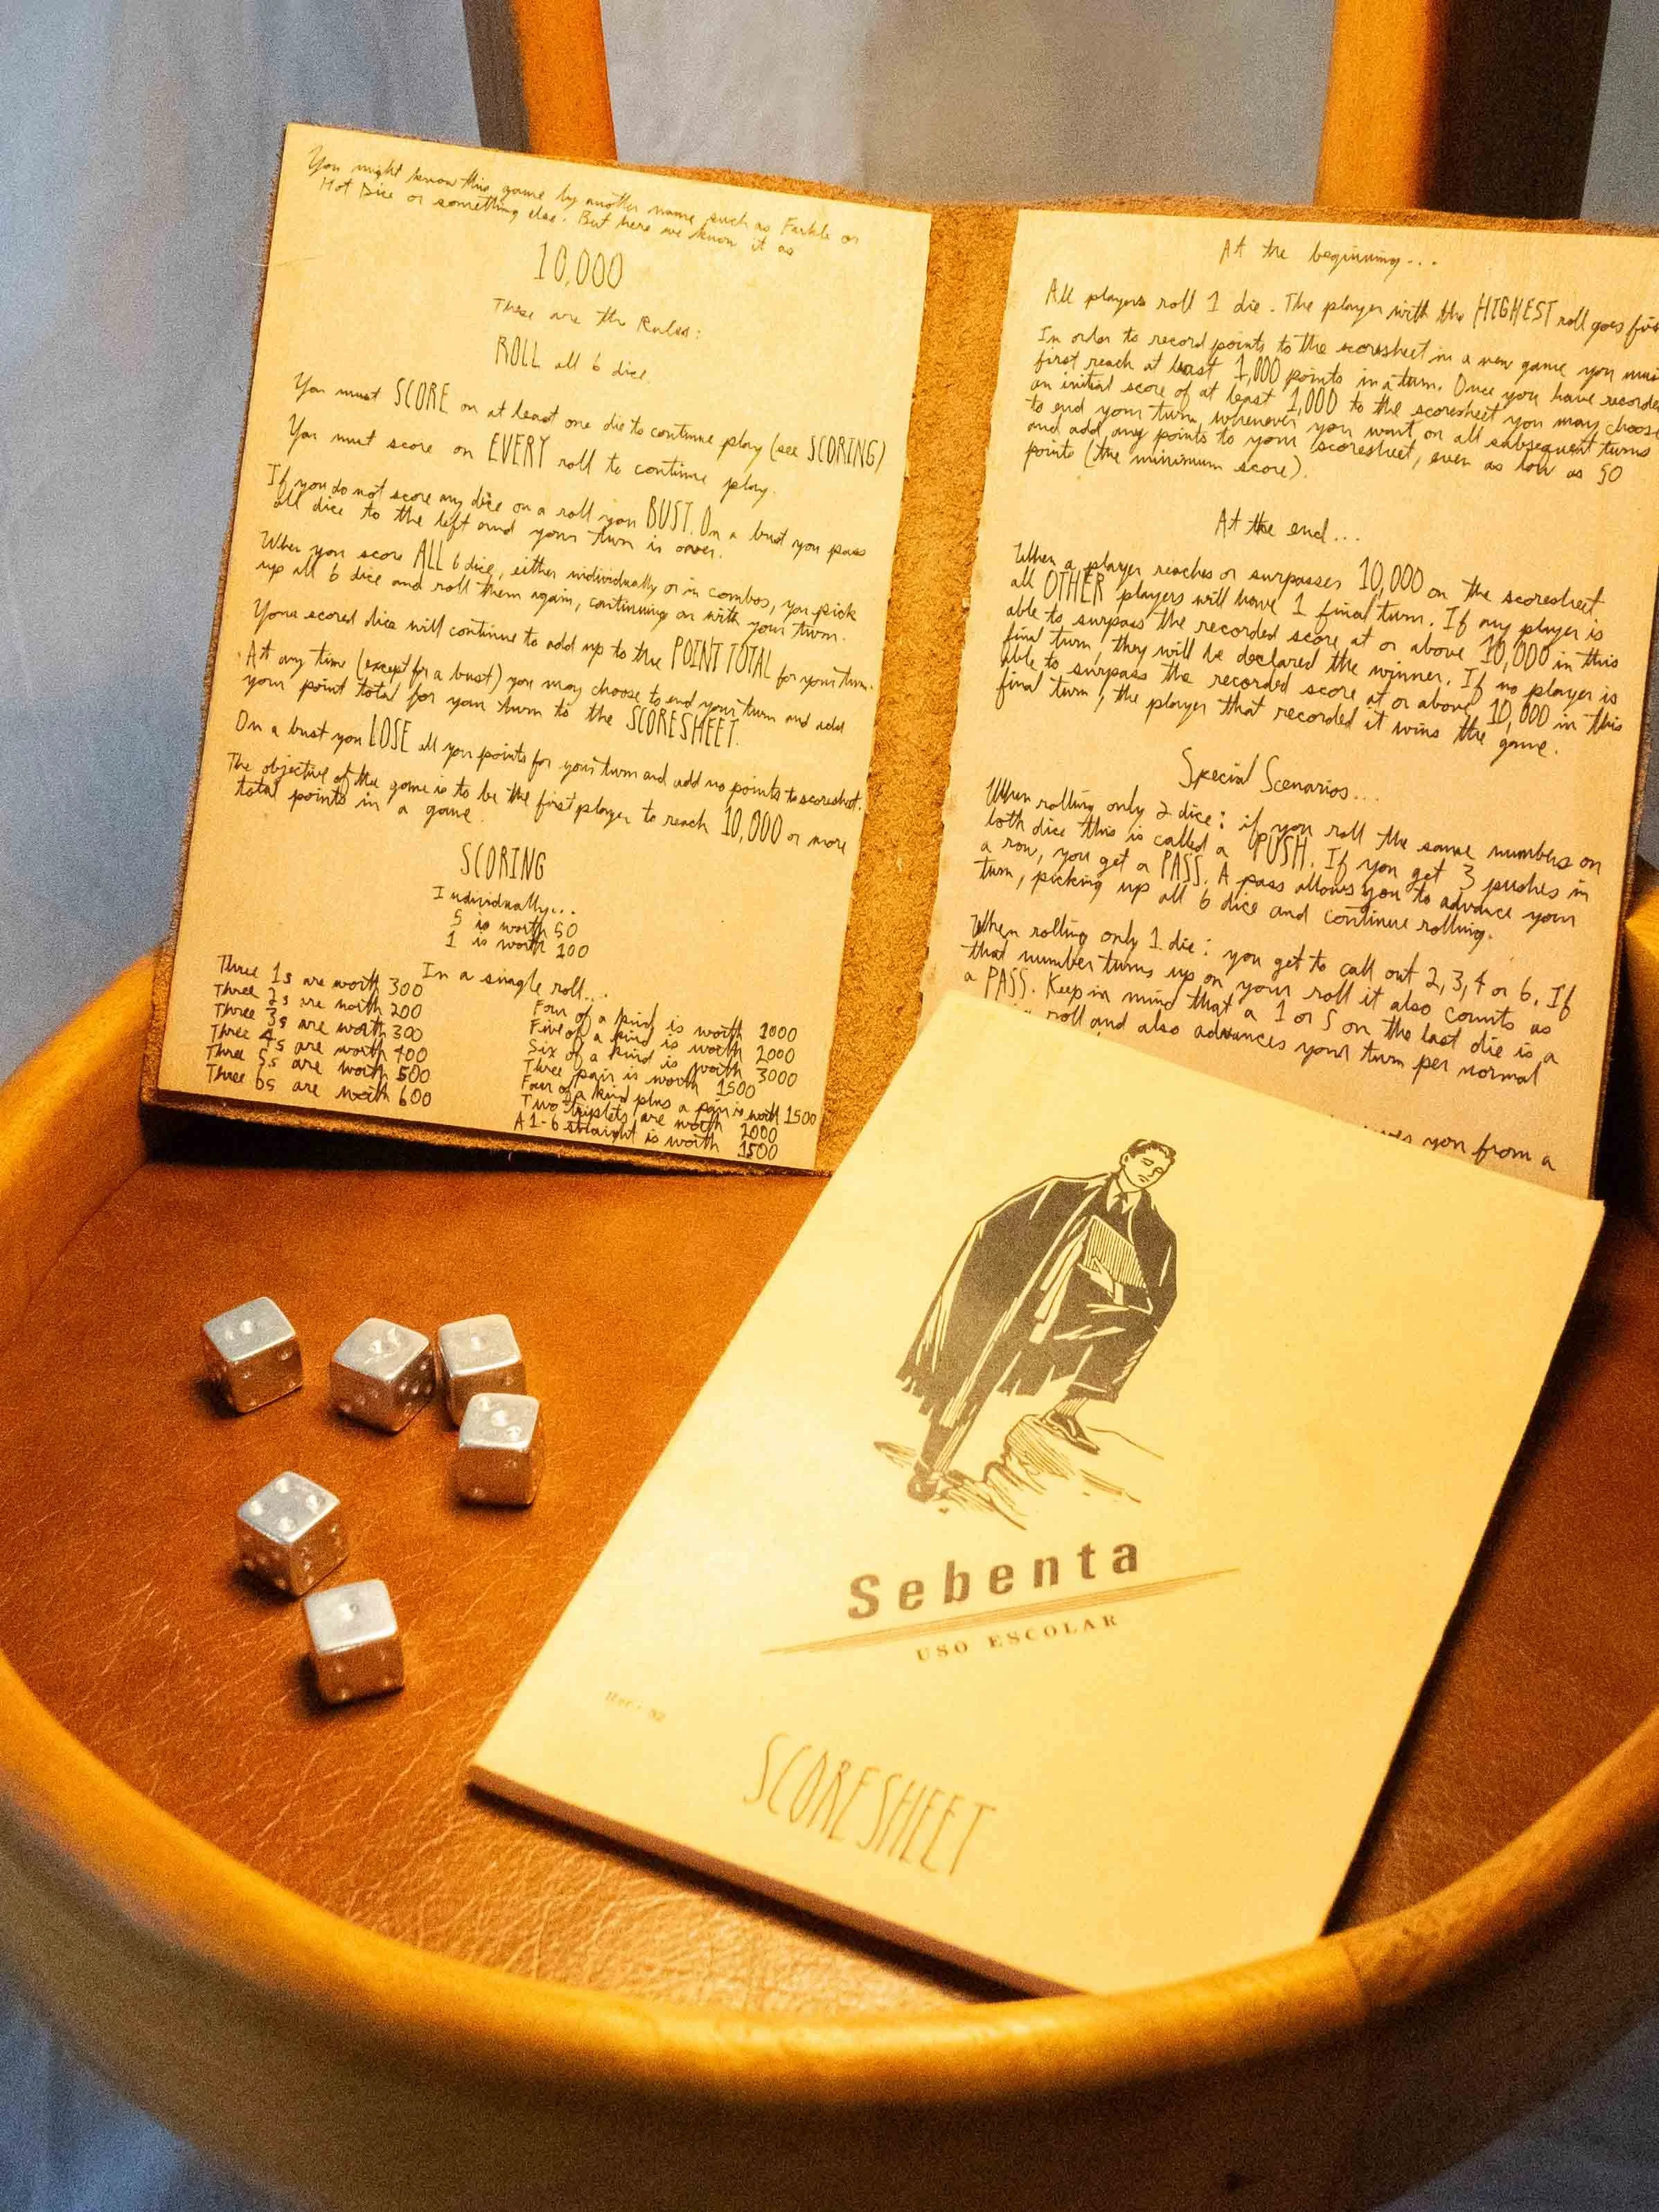 You might know this game by another name such as Farkle or
Hot Dice or something else. But here we know it as
10,000
These are the Rules:
ROLL all 6 dice.
You must SCORE on at least one die to continue play (see SCORING)
You must score on EVERY roll to continue play.
If you do not score any dice on a roll you BUST. On a bust you pass
all dice to the left and your turn is over.
When you score ALL 6 dice, either individually or in combos, you pick
up all 6 dice and roll them again, continuing on with your turn.
Your scored dice will continue to add up to the POINT TOTAL for your turn.
At any time (except for a bust) you may choose to end your turn and add
your point total for your turn to the SCORESHEET.
On a bust you LOSE all your points for your turn and add no points to scoresheet.
The objective of the game is to be the first player to reach 10,000 or more
total points in a game.
SCORING
Individually...
5 is worth 50
1 is worth 100
In a single roll...
Three 1s are worth 300
Three 2s are worth 200
Three 3s are worth 300
Three 4s are worth 400
Three 5s are worth 500
Three 6s are worth 600
Four of a kind is worth 1000
Five of a kind is worth 2000
Six of a kind is worth 3000
Three pair is worth 1500
Four of a kind plus a pair is worth 1500
Two triplets are worth 2000
A 1-6 straight is worth 1500
At the beginning...
All players roll 1 die. The player with the HIGHEST roll goes
In order to record points to the scoresheet in a new game you
first reach at least 1,000 points in a turn. Once you have
an initial score of at least 1,000 to the scoresheet you may
to end your turn whenever you want on all subsequent turns
and add any points to your scoresheet, even as low as 50
points (the minimum score).
At the end...
When a player reaches or surpasses 10,000 on the scoresheet
all OTHER players will have 1 final turn. If any player is
able to surpass the recorded score at or above 10,000 in this
final turn, they will be declared the winner. If no player is
able to surpass the recorded score at or above 10,000 in this
final turn, the player that recorded it wins the game.
Special Scenarios...
When rolling only 2 dice: if you roll the same numbers on
both dice this is called a PUSH. If you get 3 pushes in
a row, you get a PASS. A pass allows you to advance your
turn, picking up all 6 dice and continue rolling.
When rolling only 1 die: you get to call out 2, 3, 4 or 6. If
that number turns up on your roll it also counts as
a PASS. Keep in mind that a 1 or 5 on the last die is a
roll and also advances your turn per normal
you from a
Sebenta
USO ESCOLAR
SCORESHEET